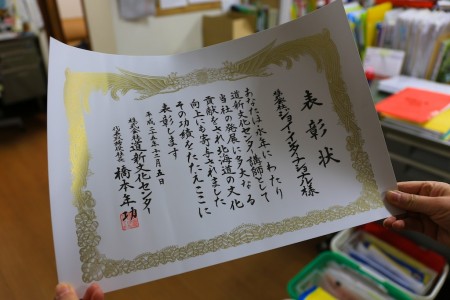 表彰状
あなたは永年にわたり
道新文化センター講師として
当社の発展に多大なる
貢献をされ北海道の文化
向上にも寄与されました
その功績をたたえここに
表彰します
平成二十五年十二月五日
株式会社道新文化センター
代表取締役社長 橋本年功